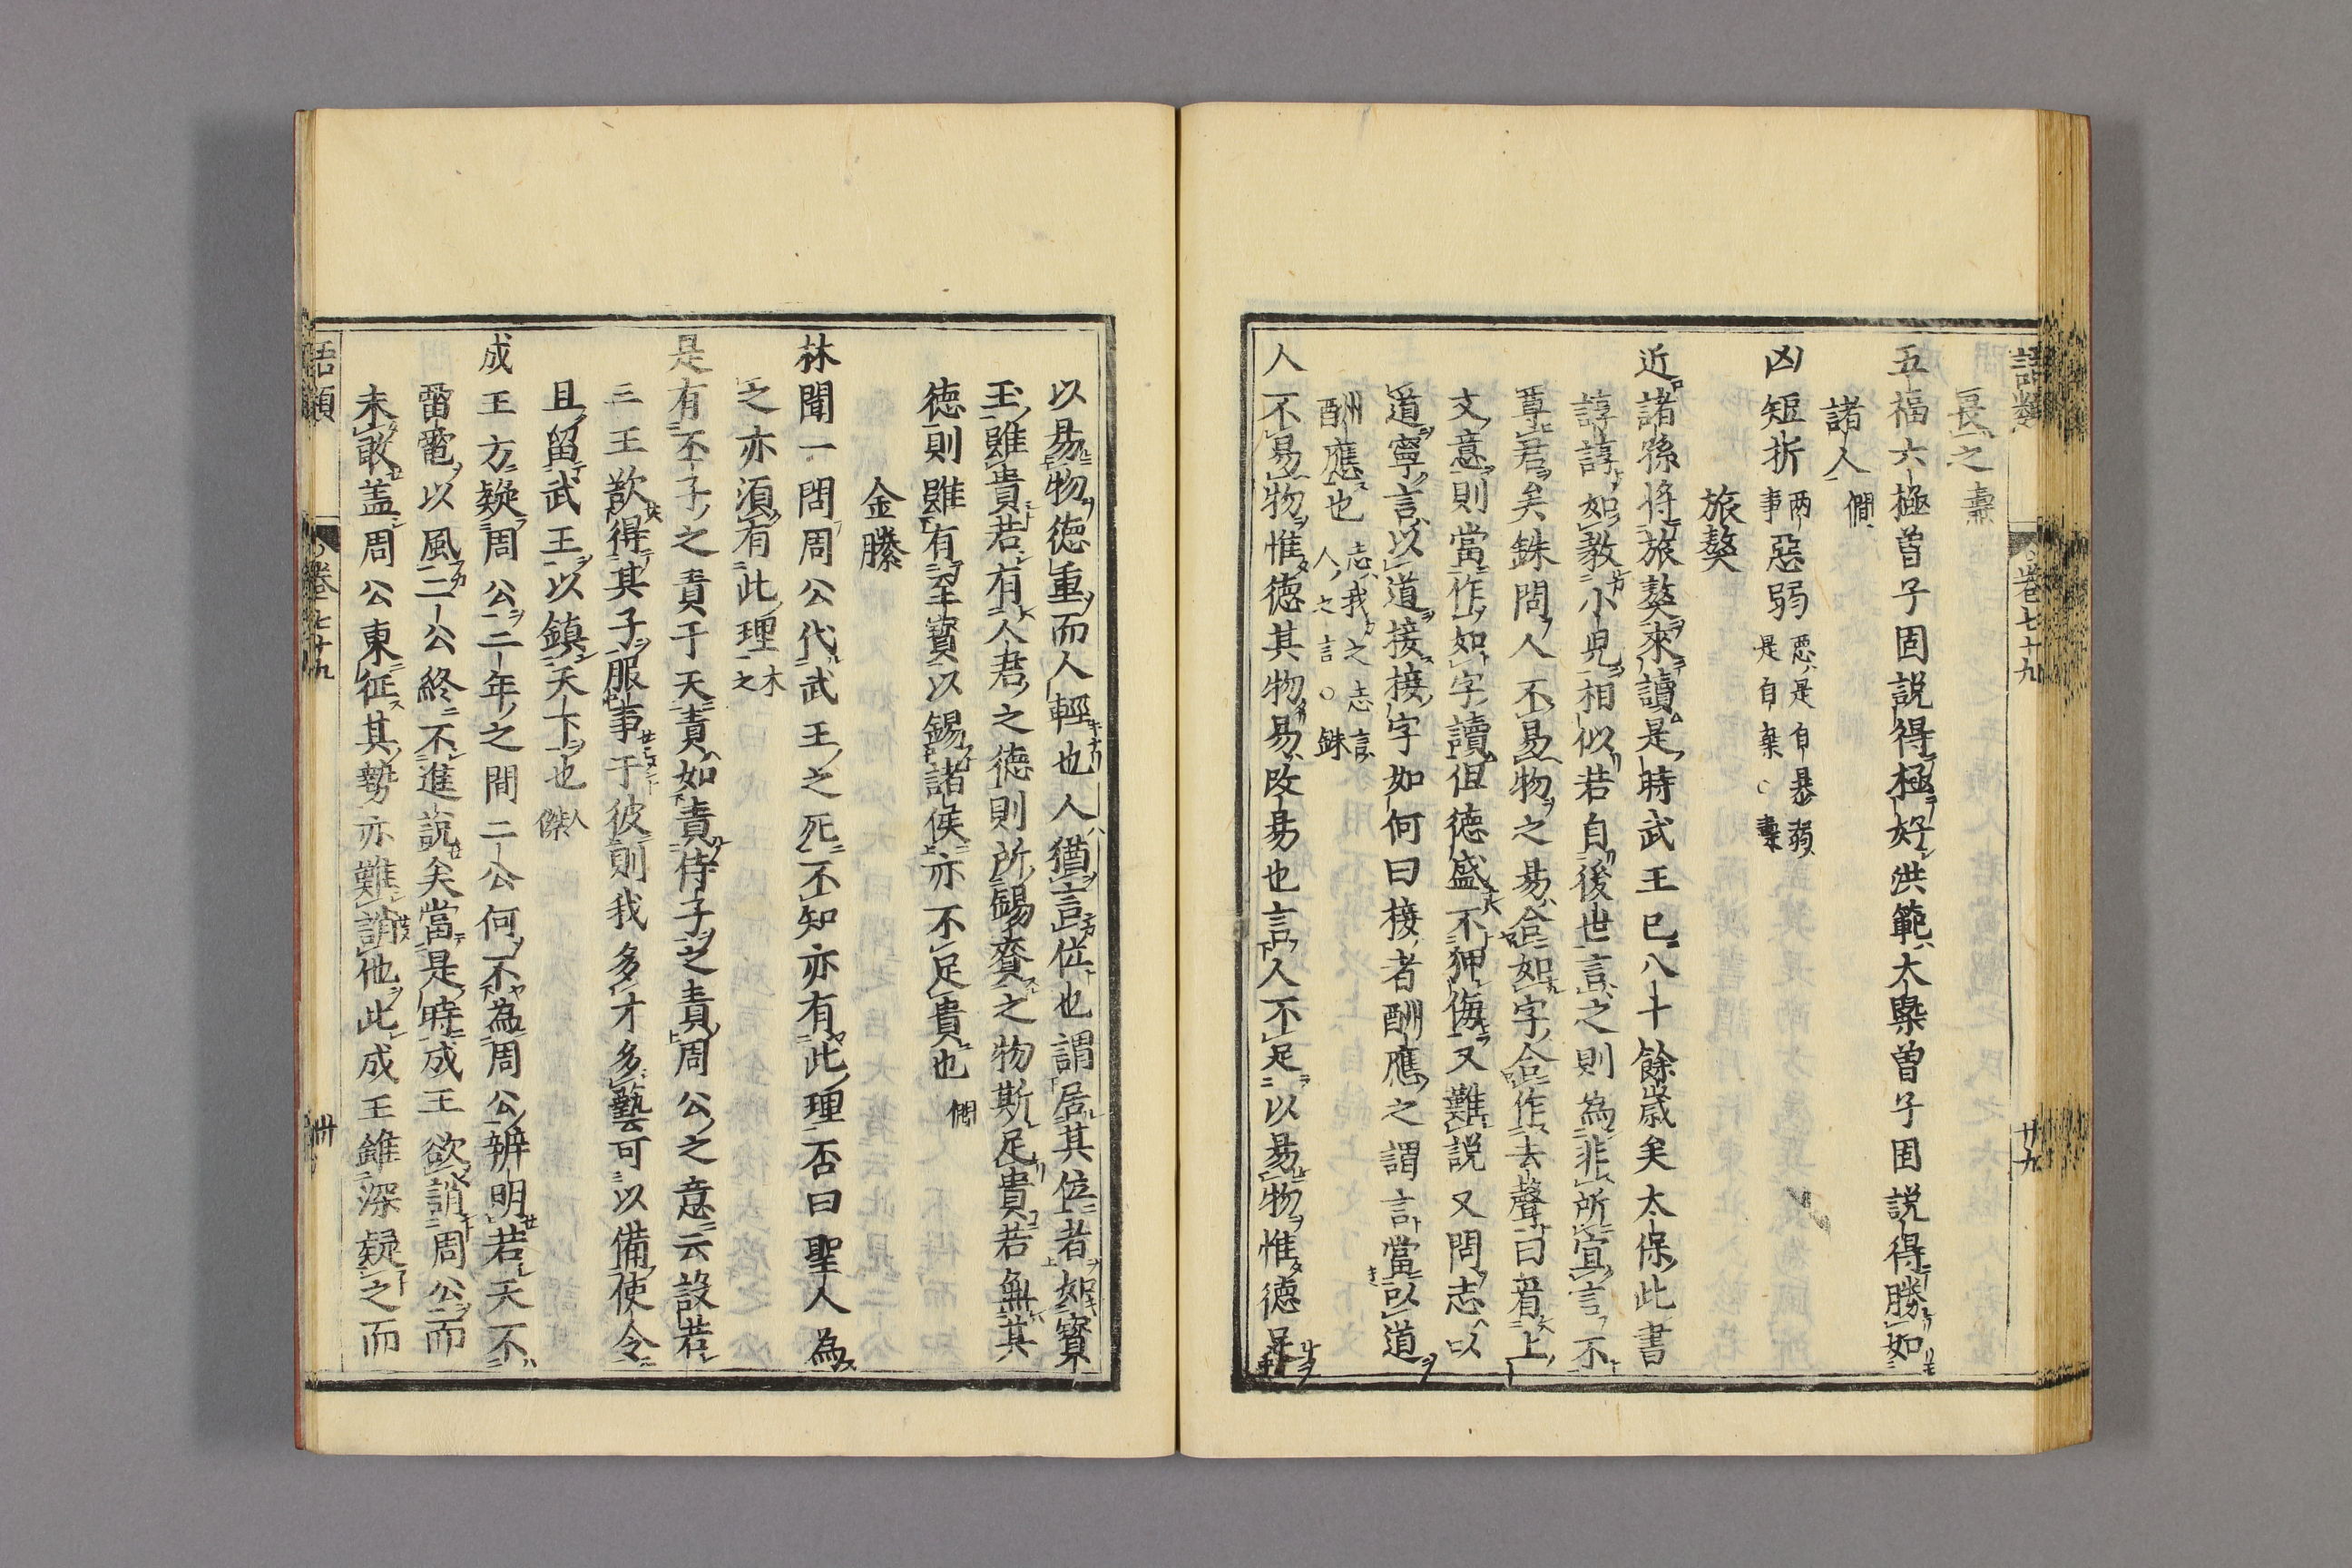 語類
卷七十九
廿九
長之壽
五福六極曾子固說得極好洪範大槩曾子固說得勝如
諸人 僴
凶短折 兩事 惡弱 惡是自暴弱是自棄○壽
旅獒
近諸孫將旅獒來讀是時武王已八十餘歲矣太保此書
諄諄如教小兒相似若自後世言之則為非所宜言不
尊君矣銖問人不易物之易合如字合作去聲曰看上
文意則當作如字讀但德盛不狎侮又難說又問志以
道寧言以道接接字如何曰接者酬應之謂言當以道
酬應也 志我之志言人之言○銖
人不易物惟德其物易改易也言人不足以易物惟德足
以易物德重而人輕也人猶言位也謂居其位者如寶
玉雖貴若有人君之德則所錫賚之物斯足貴若無其
德則雖有至寶以錫諸侯亦不足貴也 僩
金縢
林聞一問周公代武王之死不知亦有此理否曰聖人為
之亦須有此理 木之
是有丕子之責于天責如責侍子之責周公之意云設若
三王歆得其子服事于彼則我多才多藝可以備使令
且留武王以鎮天下也 人傑
成王方疑周公二年之間二公何不為周公辨明若天不
雷電以風二公終不進說矣當是時成王欲誚周公而
未敢蓋周公東征其勢亦難誚他此成王雖深疑之而
語類
卷七十九
卅